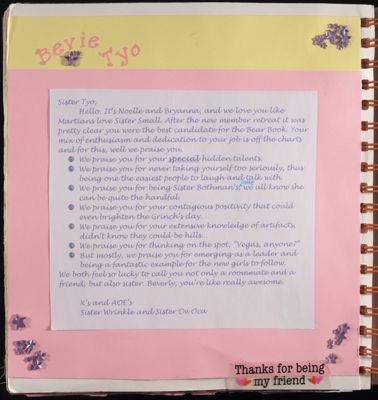 Bevie
Tyo
Sister Tyo,
Hello. It's Noelle and Bryanna, and we love you like
Martians love Sister Small. After the new member retreat it was
pretty clear you were the best candidate for the Bear Book. Your
mix of enthusiasm and dedication to your job is off the charts
and for this, well we praise you.
We praise you for your special hidden talents.
We praise you for never taking yourself too seriously, thus
being one the easiest people to laugh and talk with.
We praise you for being Sister Bothman's, we all know she
can be quite the handful.
We praise you for your contagious positivity that could
even brighten the Grinch's day.
We praise you for your extensive knowledge of artifacts,
didn't know they could be hills...
We praise you for thinking on the spot, "Vegas, anyone?"
But mostly, we praise you for emerging as a leader and
being a fantastic example for the new girls to follow.
We both feel so lucky to call you not only a roommate and a
friend, but also sister. Beverly, you're like really awesome.
X's and AOE's
Sister Wrinkle and Sister De Oca
Thanks for being
my friend